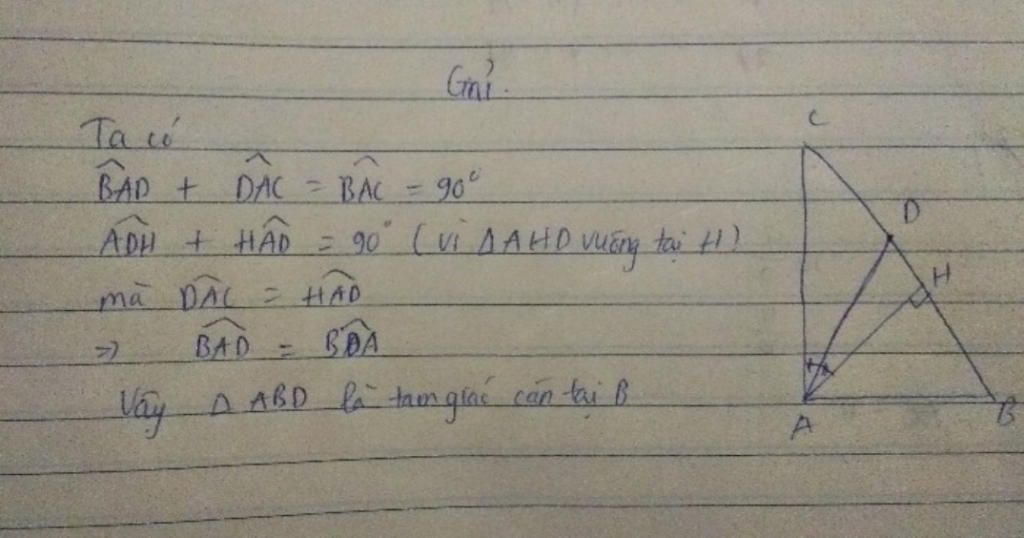 Giải.
Ta có
B̂AD + D̂AC = B̂AC = 90°
ÂDH + HÂD = 90° (vì Δ AHD vuông tại H)
mà D̂AC = HÂD
=> B̂AD = BD̂A
Vậy Δ ABD là tam giác cân tại B
C
D
H
A
B